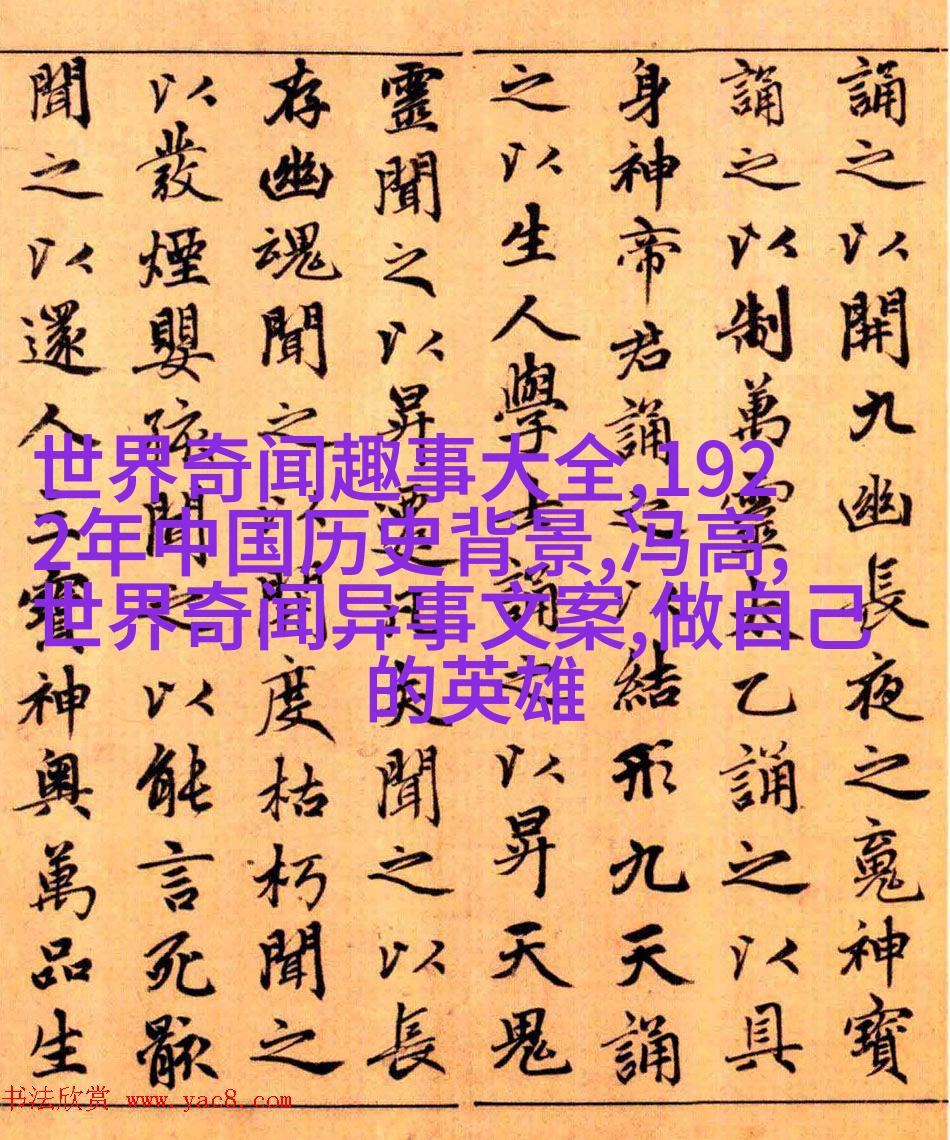 誦之以開九幽長夜之䰟神寶
誦之以制萬靈太乙誦之以具
身神帝君誦之以結形九天誦
之以生人學士誦之以昇天鬼
靈聞之以昇遷諸天聞之以長
存幽魂聞之以開度枯朽聞之
以發煙嬰孩聞之以能言死骸
聞之以還人三寶神奥萬品生
世界奇闻趣事大全,192
2年中国历史背景,冯高,
世界奇闻异事文案,做自己
的英雄
书法欣赏 www.yac8.com